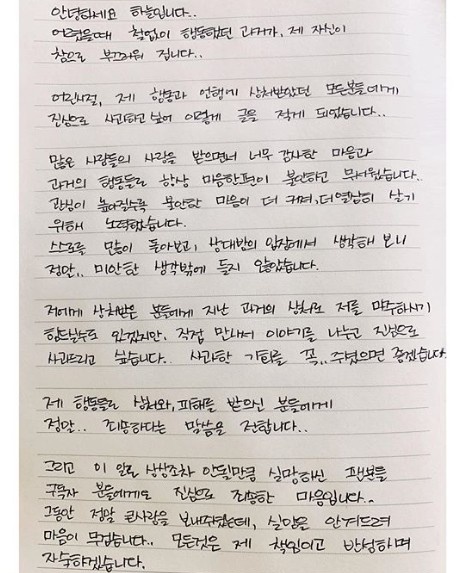 안녕하세요 하늘입니다..
어렸을때 철없이 행동했던 과거가, 제 자신이
참으로 부끄러워 집니다..
어린시절, 제 행동과 언행에 상처받았던 모든분들에게
진심으로 사과하고 싶어 이렇게 글을 적게 되었습니다..
많은 사람들의 사랑을 받으면서 너무 감사한 마음과
과거의 행동들로 항상 마음한편이 불안하고 무서웠습니다..
관심이 높아질수록 불안한 마음이 더 커며, 더 열심히 살기
위해 노력했습니다.
스스로를 많이 돌아보고, 상대방의 입장에서 생각해 보니
정말.. 미안한 생각밖에 들지 않았습니다.
저에게 상처받은 분들에게 지난 과거의 상처로 저를 마주하시기
힘드실수도 있겠지만, 직접 만나서 이야기를 나누고 진심으로
사과드리고 싶습니다.. 사과할 기회를 꼭.. 주셨으면 좋겠습니다
제 행동들로 상처와, 피해를 받으신 분들에게
정말.. 죄송하다는 말씀을 전합니다..
그리고 이 일로 상상조차 안될만큼 실망하신 팬분들
구독자 분들에게도 진심으로 죄송한 마음입니다..
그동안 정말 큰사랑을 보내주셨는데, 실망을 안겨드려
마음이 무겁습니다.. 모든것은 제 책임이고 반성하며
자숙하겠습니다.